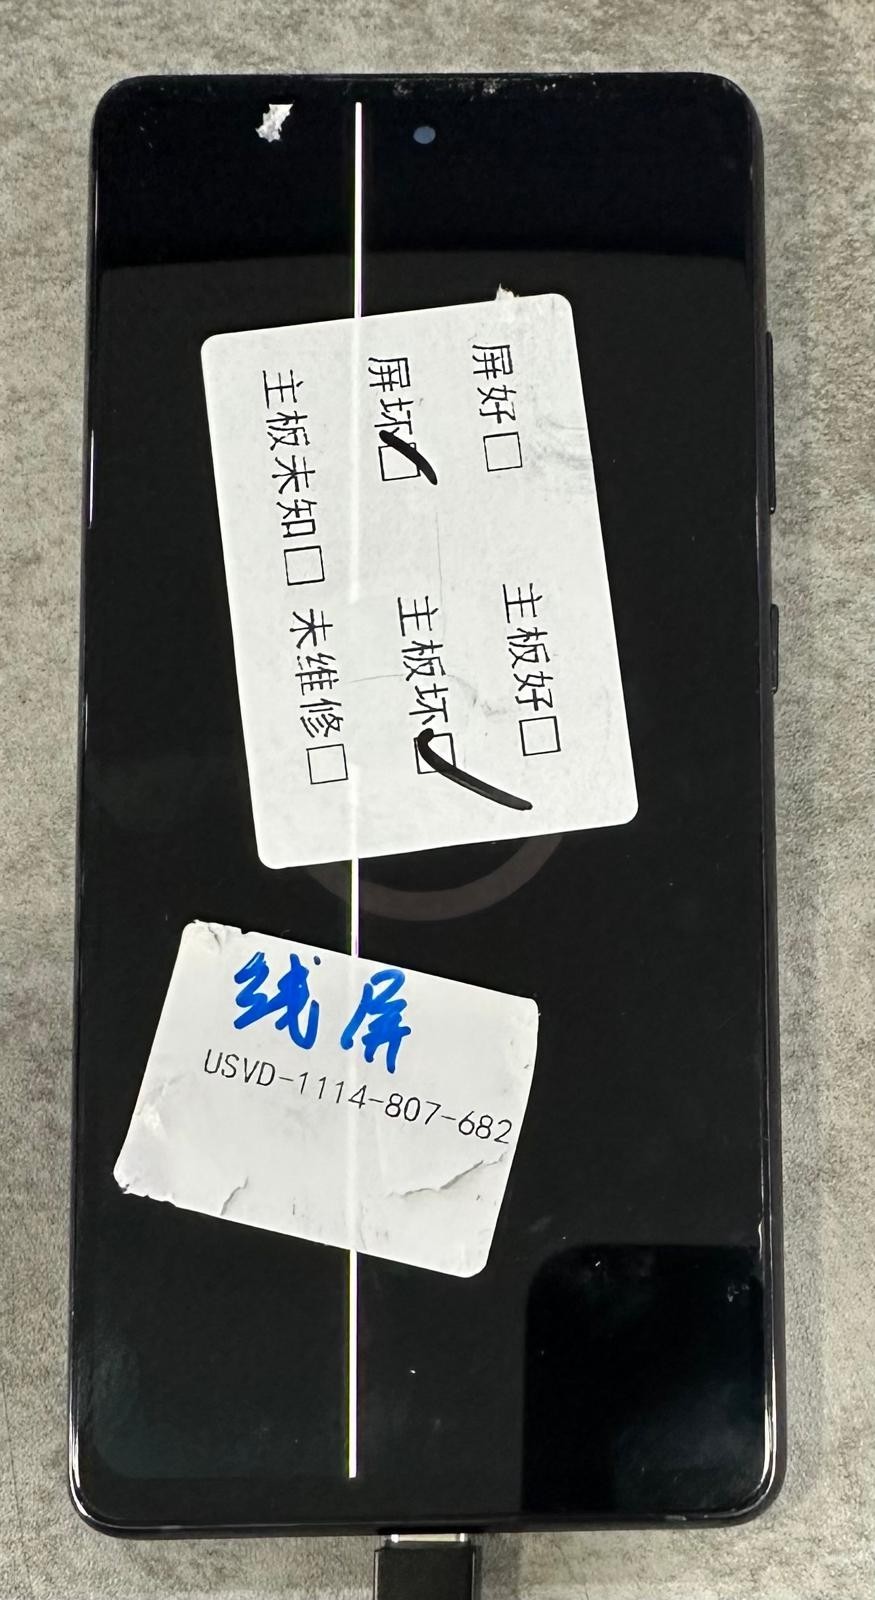 屏好□ 主板好□
屏坏□ 主板坏□
主板未知□ 未维修□
线屏
USVD-1114-807-682